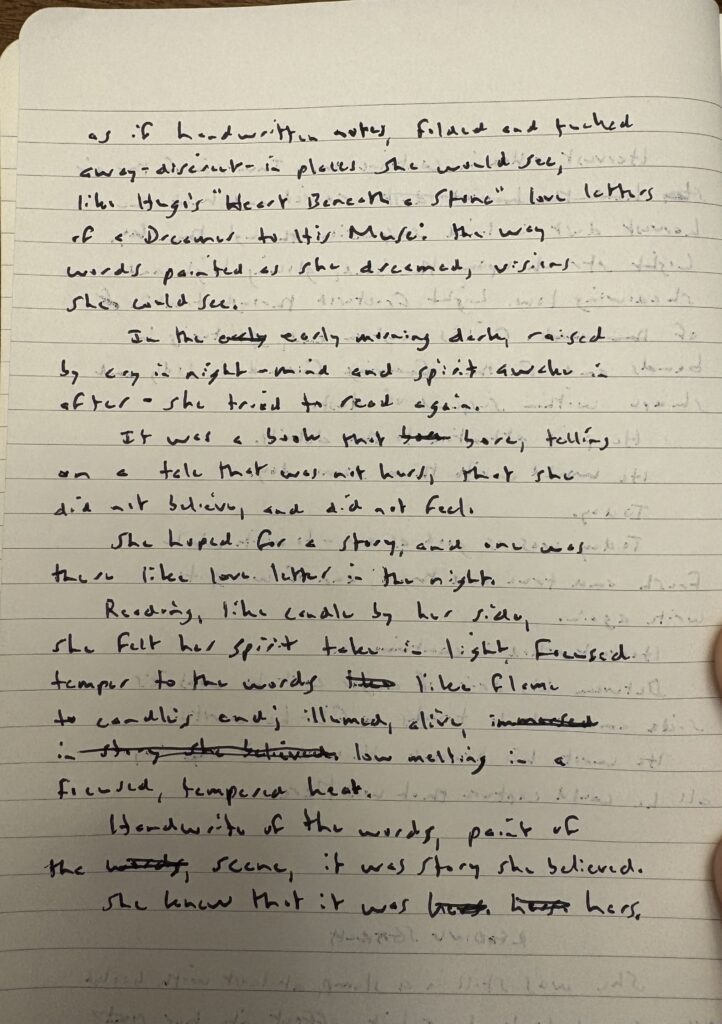 as if handwritten notes, folded and tucked
away-discreet-in places she would see,
like Hugo's "Heart Beneath a Stone" love letters
of a Dreamer to His Muse: the way
words painted as she dreamed, visions
she could see.
In the early early morning dark, raised
by cry in night-mind and spirit awake in
after-she tried to read again.
It was a book that bore, telling
on a tale that was not hers, that she
did not believe, and did not feel.
She hoped for a story, and one was
there like love letter in the night.
Reading, like candle by her side,
she felt her spirit take in light, focused
temper to the words like flame
to candle's end; illumed, alive, immersed
in story she believed. low melting in a
focused, tempered heat.
Handwrite of the words, paint of
the words, scene, it was story she believed.
She knew that it was hers. hers hers.